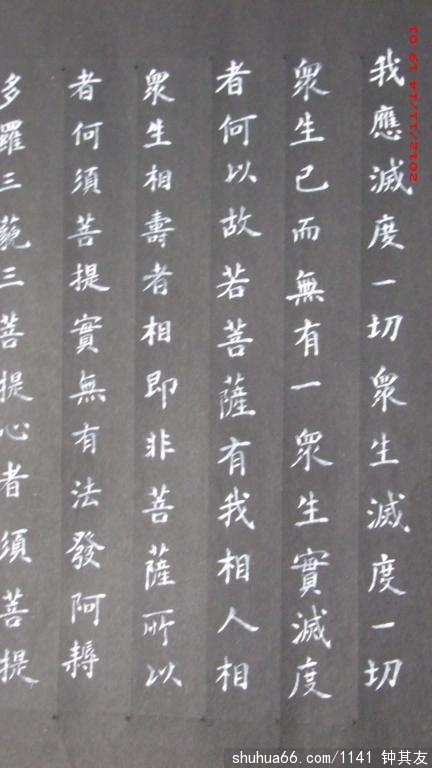 我應滅度一切衆生滅度一切
衆生已而無有一衆生實滅度
者何以故若菩薩有我相人相
衆生相壽者相即非菩薩所以
者何須菩提實無有法發阿耨
多羅三藐三菩提心者須菩提
2012/11/14 19:01
shuhua66.com/1141 钟其友